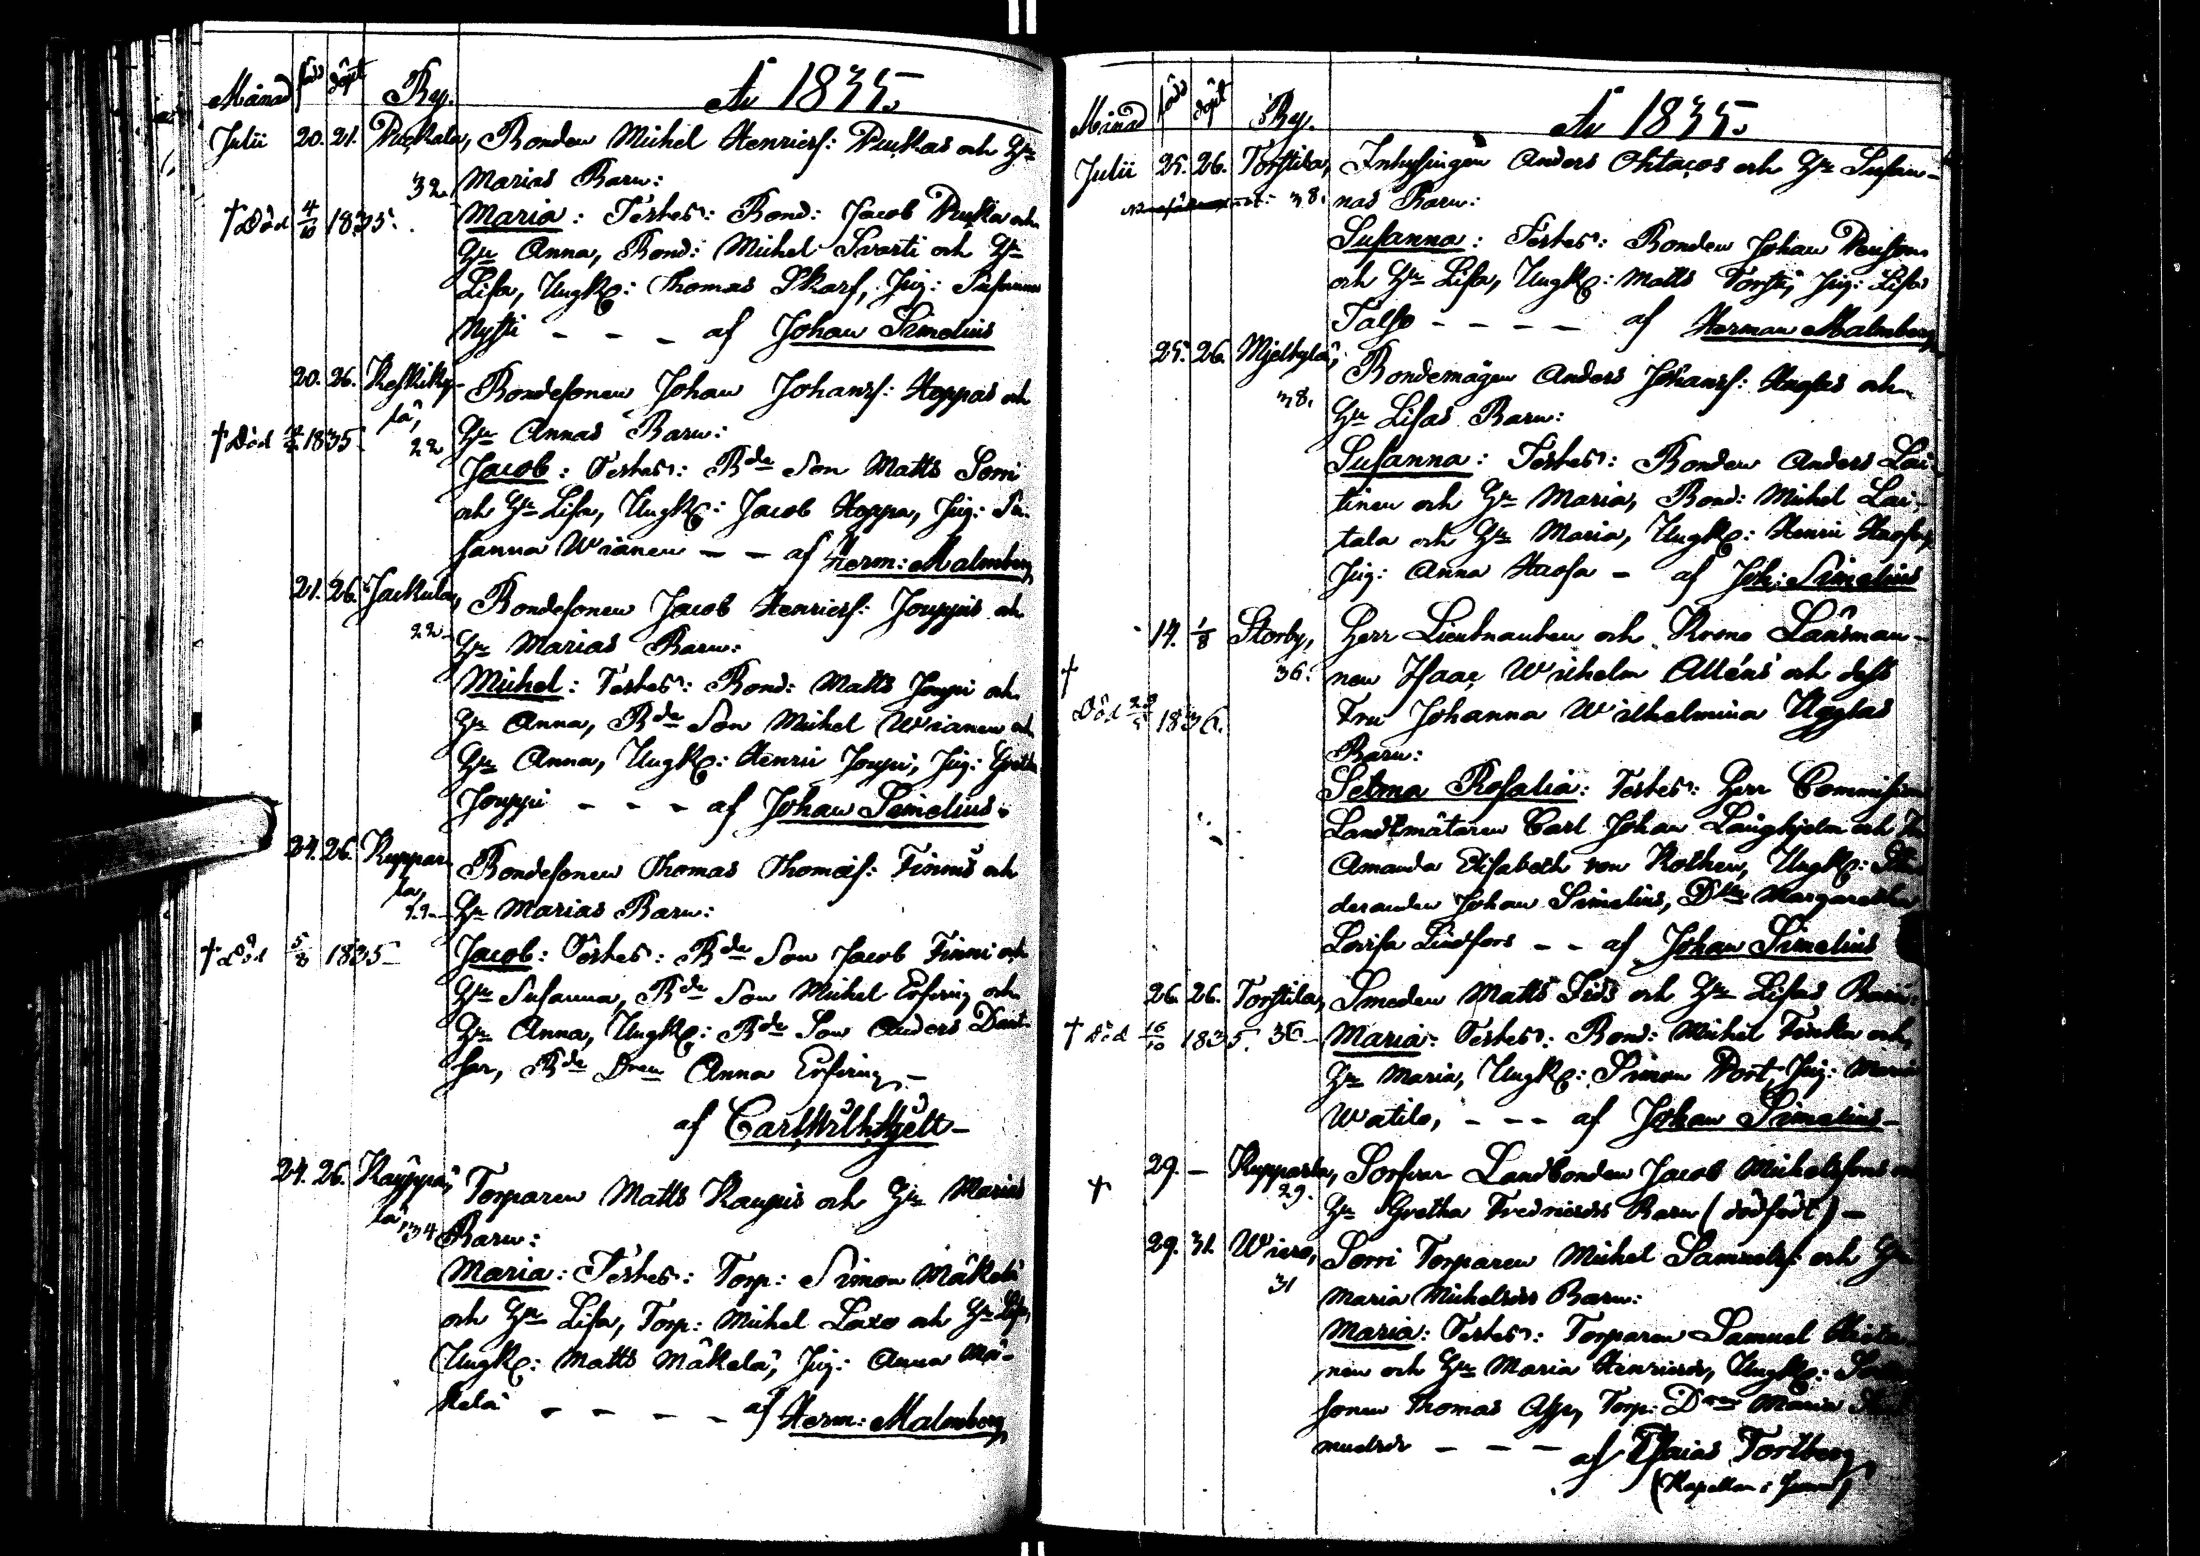 Månad född döpt By. År 1835.
Julii 20. 21. Puckala, Bonden Michel Henricss: Puckas och Hu
32. Marias Barn:
† Död 4/10 1835. Maria: Testes: Bond: Jacob Pucka och
Hu Anna, Bond: Michel Svarti och Hu
Lisa, Ungk: Thomas Skarf, Pig: Susanna
Nytti – – – af Johan Simelius
20. 26. Keskiky- Bondesonen Johan Johanss: Hoppas och
lä, Hu Annas Barn:
† Död 1835 22
Jacob: Testes: Bde Son Matts Sorri
och Hu Lisa, Ungk: Jacob Hoppa, Pig: Su-
sanna Wianen – – af Herm: Malmberg
21. 26. Jackula, Bondesonen Jacob Henricss: Jouppis och
22 Hu Marias Barn:
Michel: Testes: Bond: Matts Jouppi och
Hu Anna, Bde Son Michel Wianen och
Hu Anna, Ungk: Henric Jouppi, Pig: Greta
Jouppi – – – af Johan Simelius.
24. 26. Kuppar- Bondesonen Thomas Thomass: Finnis och
la,
29. Hu Marias Barn:
† Död 5/8 1835 Jacob: Testes: Bde Son Jacob Finni och
Hu Susanna, Bde Son Michel Erfving och
Hu Anna, Ungk: Bde Son Anders Dant-
sar, Bde Dren Anna Erfving –
af Carl Wilh: Hjelt –
24. 26. Kauppi- Torparen Matts Kaupis och Hu Marias
lä, 34 Barn:
Maria: Testes: Torp: Simon Mäkelä
och Hu Lisa, Torp: Michel Laxo och Hu Lisa,
Ungk: Matts Mäkelä, Pig: Anna Mä-
kelä – – – – af Herm: Malmberg
Månad född döpt By. År 1835.
Julii 25. 26. Torstila, Inhysingen Anders Ohtacos och Hu Susan-
38. nas Barn:
Susanna: Testes: Bonden Johan
och Hu Lisa, Ungk: Matts Torsti, Pig: Lisa
Talso – – – – af Herman Malmberg
25. 26. Mjelbylä, Bondemågen Anders Johanss: Huglas och
38. Hu Lisas Barn:
Susanna: Testes: Bonden Anders Lau-
tinen och Hu Maria, Bond: Michel Lau-
tala och Hu Maria, Ungk: Henric Haosa,
Pig: Anna Haosa – af Joh: Simelius
14. 1/8 Storby, Herr Lieutnanten och Krono Länsman-
† 36. nen Isaac Wilhelm Alléns och dess
Död 1836. Fru Johanna Wilhelmina Ugglas
Barn:
Selma Rosalia: Testes: Herr Commissions
Landtmätaren Carl Johan Långhjelm och Fru
Amanda Elisabeth von Kothen, Ungk: Stu-
deranden Johan Simelius, Dtr Margaretha
Lovisa Lindfors – – af Johan Simelius
26. 26. Torstila, Smeden Matts Frös och Hu Lisas Barn:
† Död 16/10 1835. 36 – Maria: Testes: Bond: Michel Tonka och
Hu Maria, Ungk: Simon Port, Pig: Maria
Watilo, – – – af Johan Simelius –
29. – Kupparla, Sorfvar Landbonden Jacob Michelssons och
† 29. Hu Gretha Fredricsdrs Barn (dödfödt) –
29. 31. Wiero, Sorri Torparen Michel Samuelss: och Hu
31 Maria Michelsdrs Barn:
Maria: Testes: Torparen Samuel
nen och Hu Maria Henricsdr, Ungk:
sonen Thomas Ajje, Torp: Dren Maria
muelsdr – – – af Esaias Fortberg
(Kapellan i